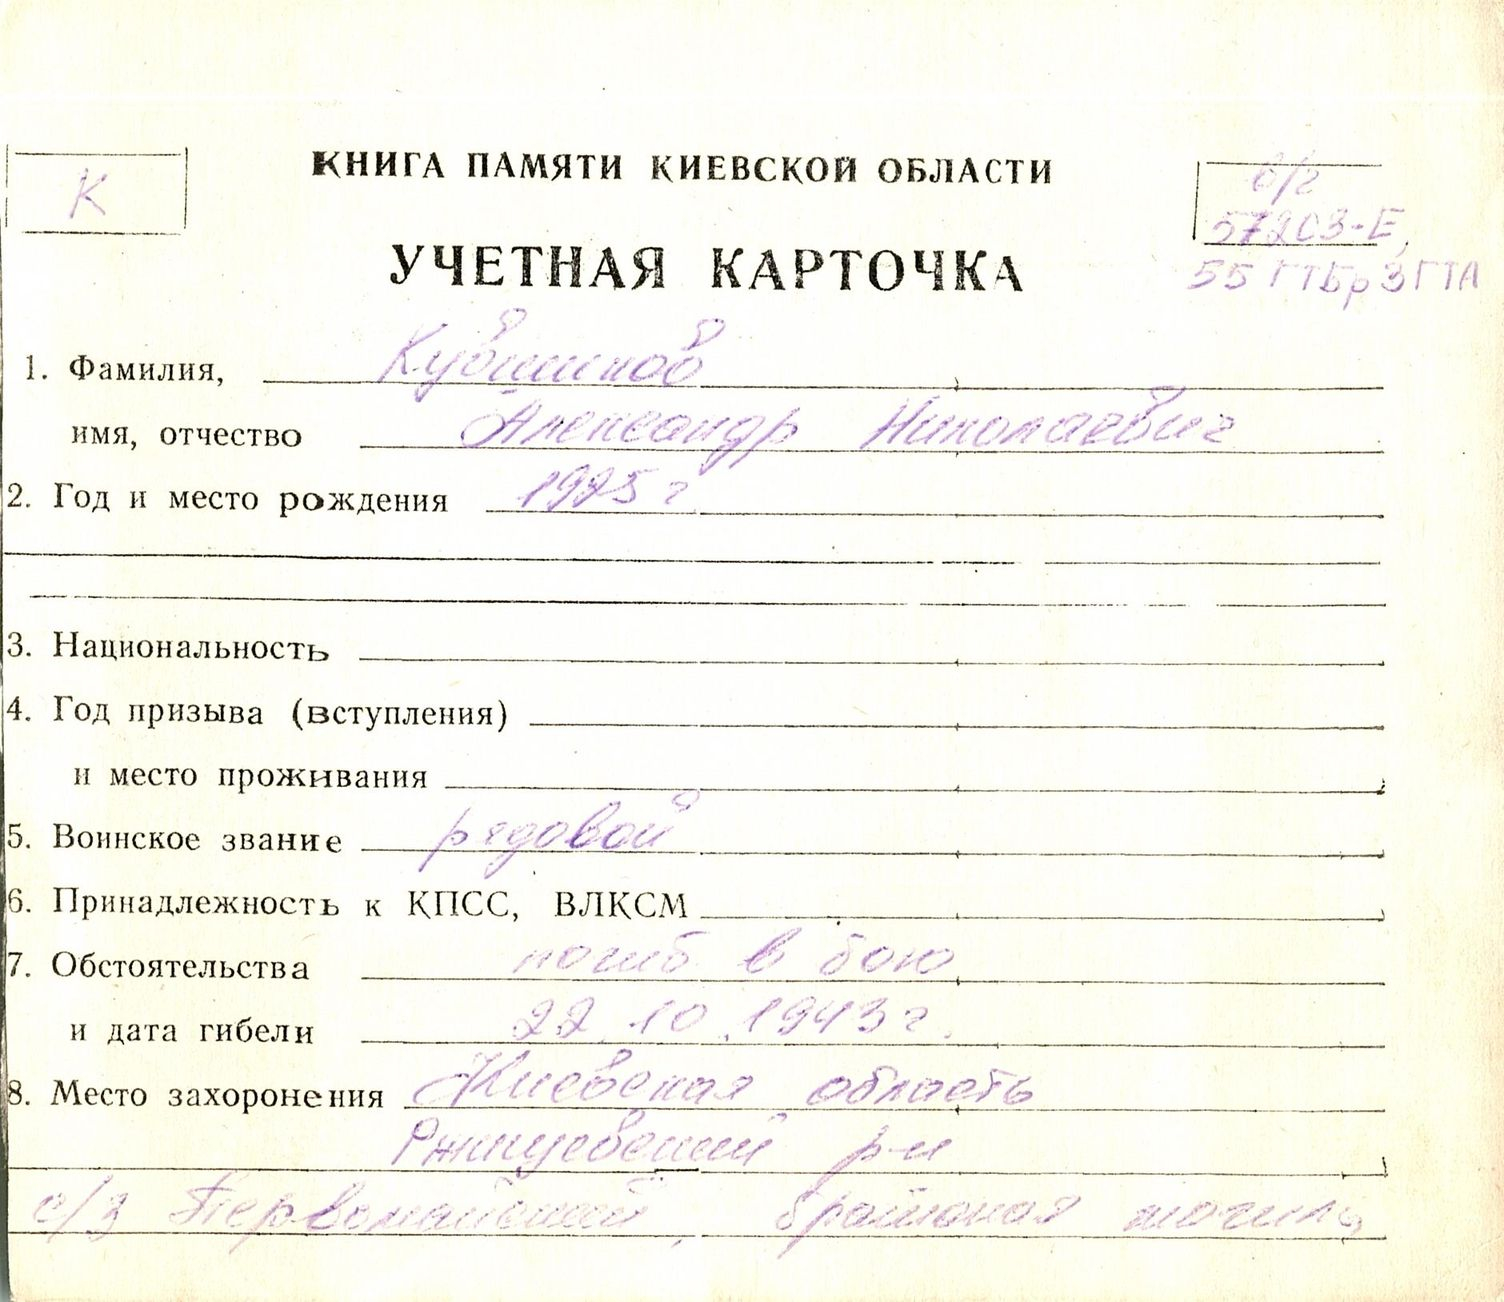 К
КНИГА ПАМЯТИ КИЕВСКОЙ ОБЛАСТИ
57203-Е,
УЧЕТНАЯ КАРТОЧКА
55 ГТБр 3 ГТА
1. Фамилия, Кувшинов
имя, отчество Александр Николаевич
2. Год и место рождения 1925 г
3. Национальность
4. Год призыва (вступления)
и место проживания
5. Воинское звание рядовой
6. Принадлежность к КПСС, ВЛКСМ
7. Обстоятельства погиб в бою
и дата гибели 22.10.1943 г.
8. Место захоронения Киевская область
р-н
с/з Первомайский, братская могила